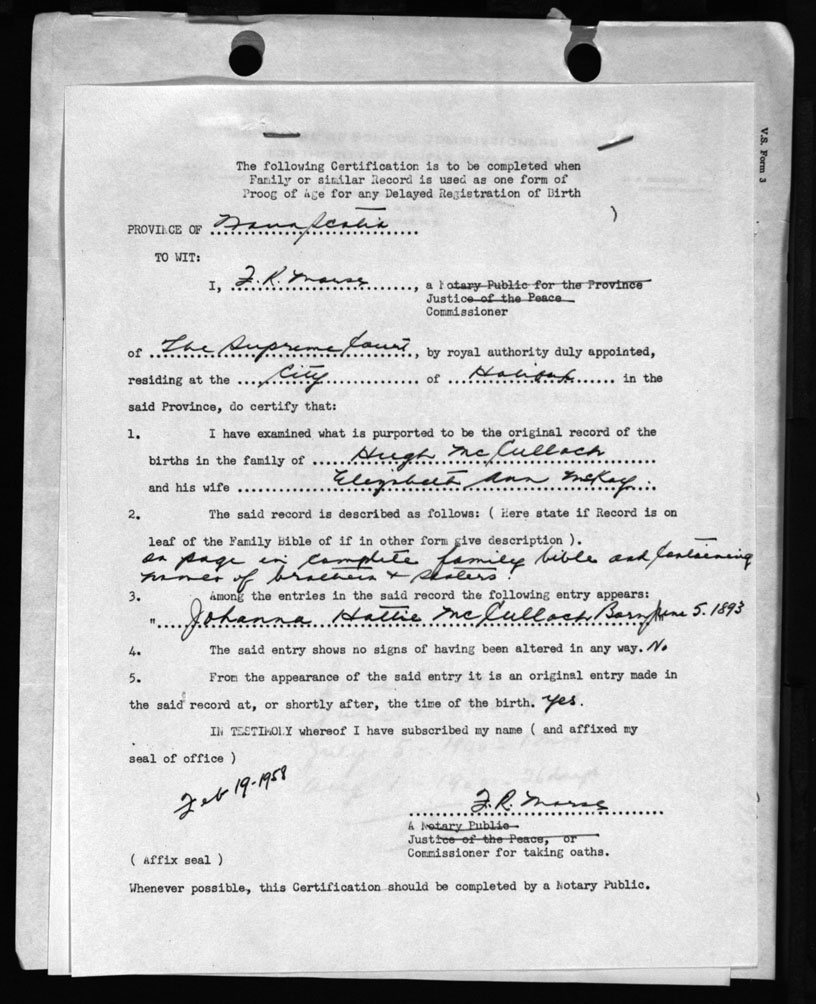 V.S. Form 3
The following Certification is to be completed when
Family or similar Record is used as one form of
Proog of Age for any Delayed Registration of Birth
PROVINCE OF Nova Scotia )
TO WIT:
I, F. R. Morse, a Notary Public for the Province
Justice of the Peace
Commissioner
of The Supreme Court, by royal authority duly appointed,
residing at the City of Halifax in the
said Province, do certify that:
1. I have examined what is purported to be the original record of the
births in the family of Hugh McCulloch
and his wife Elizabeth Ann McKay.
2. The said record is described as follows: ( Here state if Record is on
leaf of the Family Bible of if in other form give description ).
on page in complete family bible and containing
names of brothers & sisters.
3. Among the entries in the said record the following entry appears:
" Johanna Hattie McCulloch Born June 5. 1893
4. The said entry shows no signs of having been altered in any way. No
5. From the appearance of the said entry it is an original entry made in
the said record at, or shortly after, the time of the birth. Yes.
IN TESTIMONY whereof I have subscribed my name ( and affixed my
seal of office )
Feb 19-1958
F. R. Morse
A Notary Public
Justice of the Peace, or
Commissioner for taking oaths.
( Affix seal )
Whenever possible, this Certification should be completed by a Notary Public.